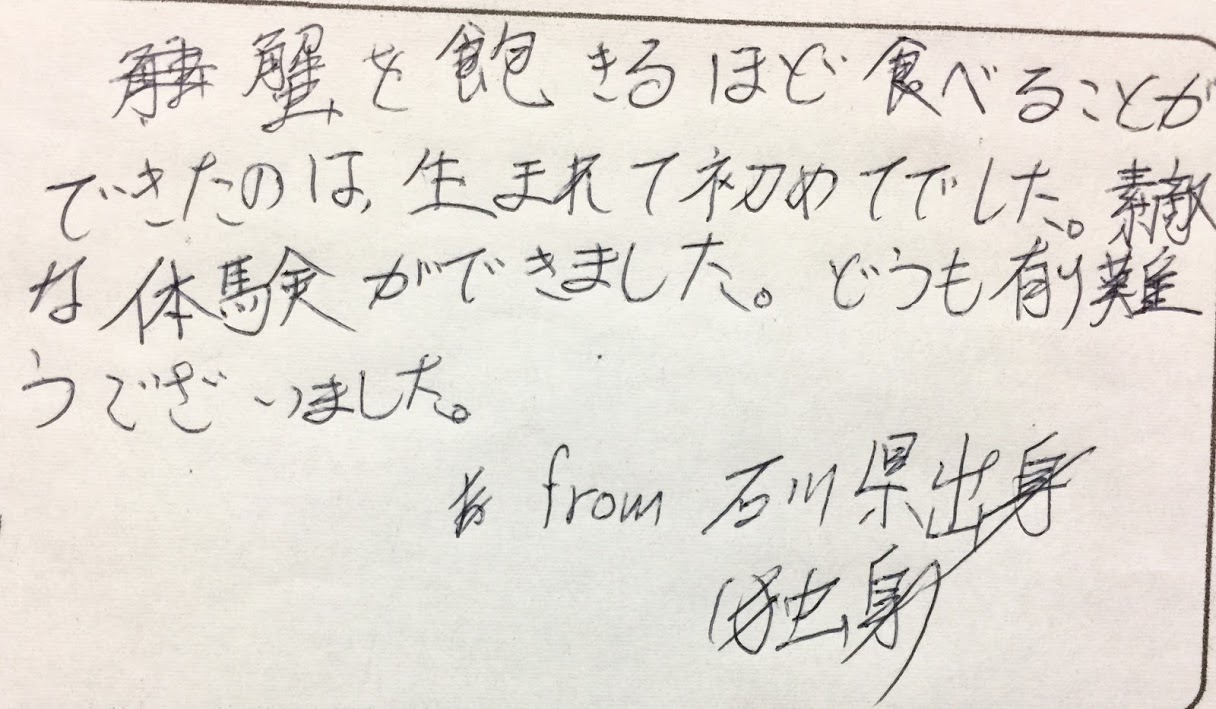 蟹を飽きるほど食べることが
できたのは、生まれて初めてでした。素敵
な体験ができました。どうも有り難
うございました。
from 石川県出身
(独身)